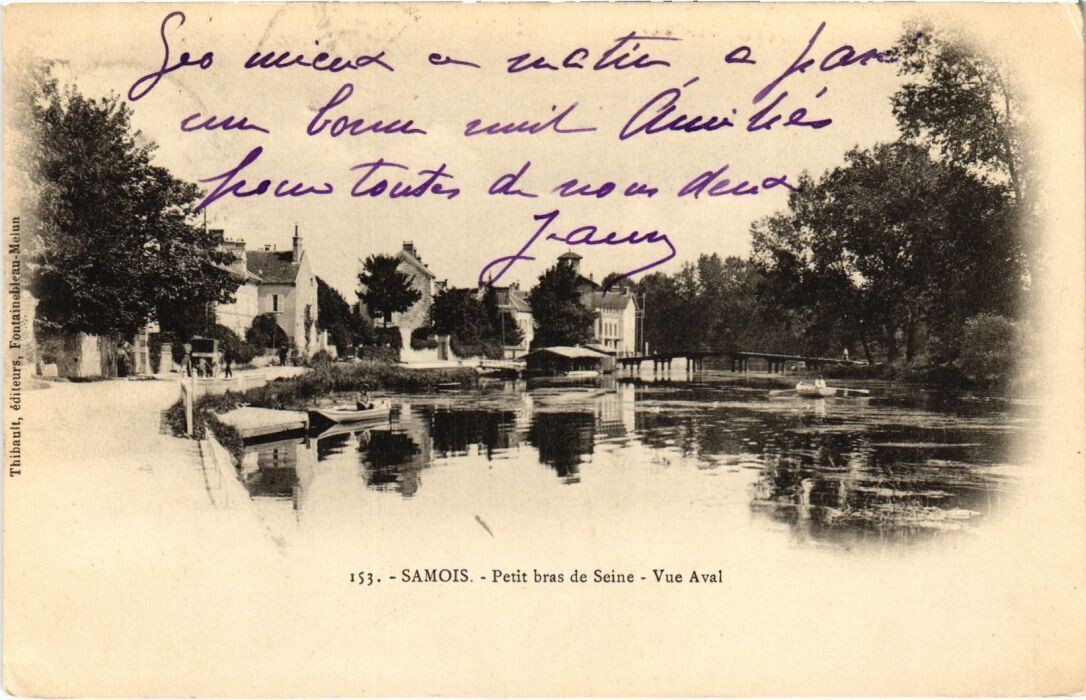 Geo mieux ce matin a passé
une bonne nuit Amitiés
pour toutes de nous deux
Jany
Thibault, éditeurs, Fontainebleau-Melun
153. - SAMOIS. - Petit bras de Seine - Vue Aval